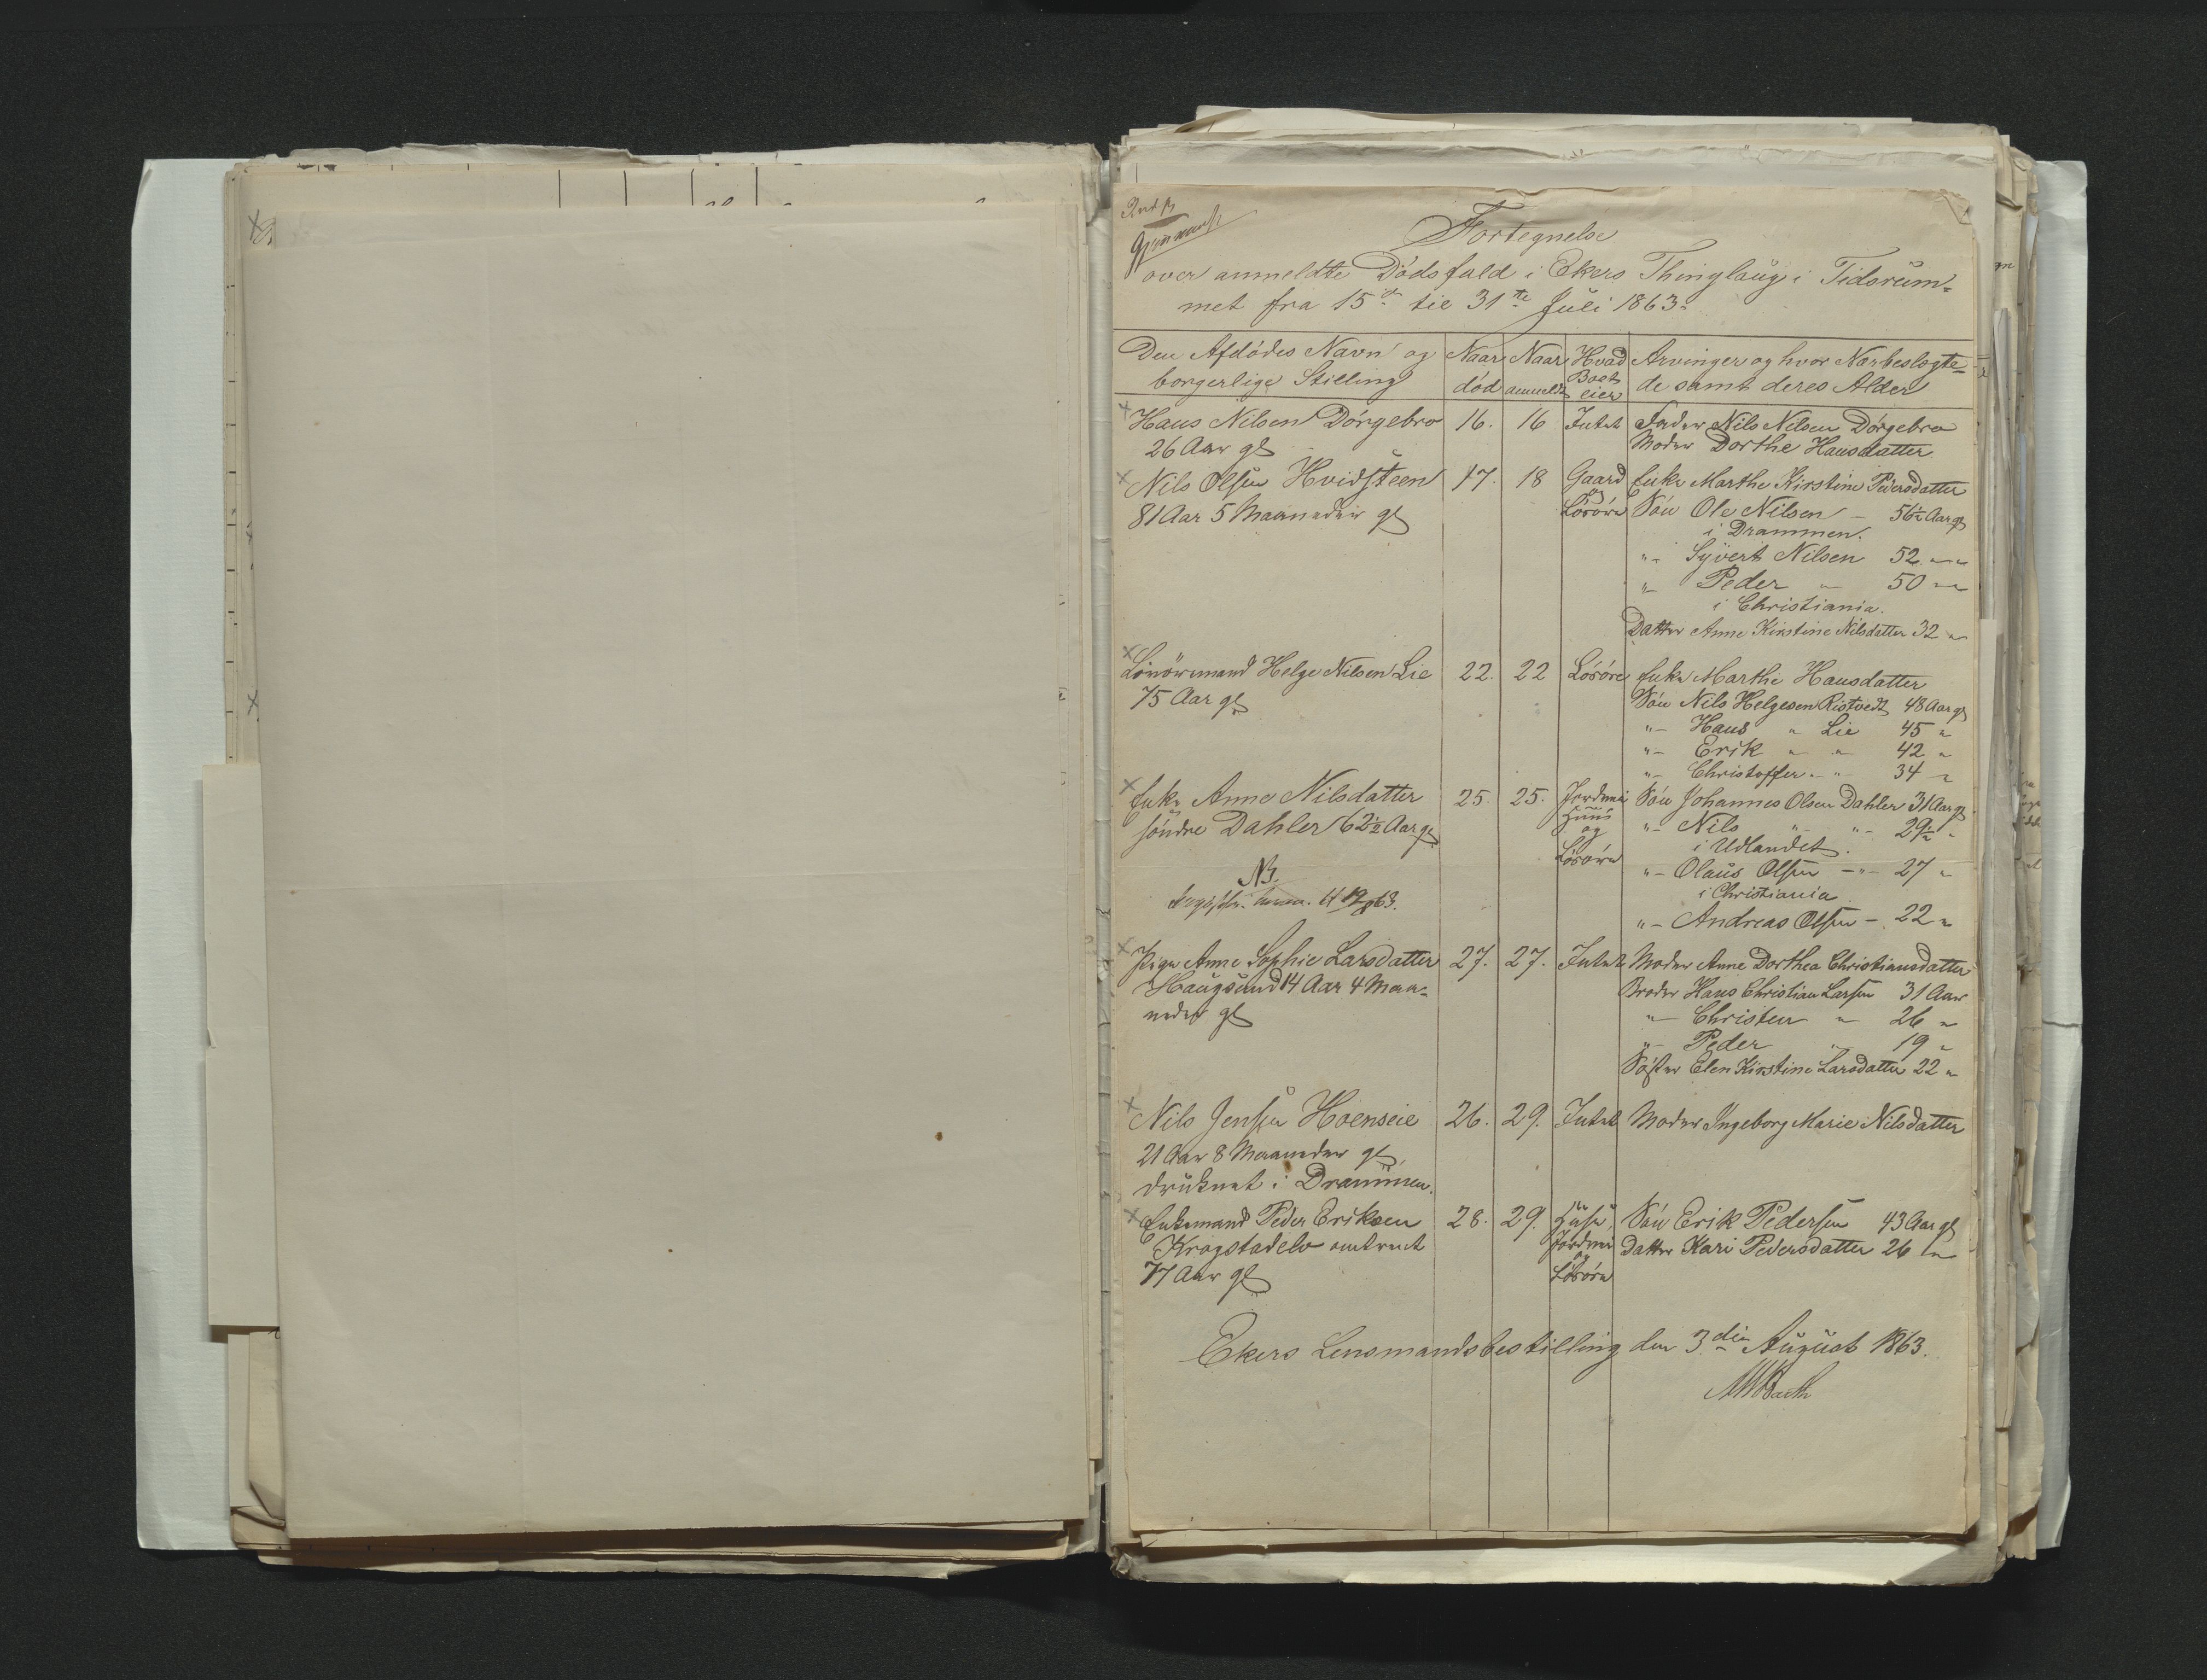 Fortegnelse
over anmeldte Dödsfald i Ekers Thinglaug i Tidsrum-
met fra 15de til 31te Juli 1863.
Den Afdödes Navn og borgerlige Stilling | Naar död | Naar anmeldt | Hvad Boet eier | Arvinger og hvor Nærbeslægte-
de samt deres Alder
Hans Nilsen Dörgebro 16. 16 Intet Fader Nils Nilsen Dörgebro
26 Aar gl Moder Dorthe Hansdatter
Nils Olsen Hvidsteen 17. 18 Gaard Enke Marthe Kirstine Pedersdatter
81 Aar 5 Maaneder gl og Lösöre Sön Ole Nilsen – 56½ Aar gl
i Drammen.
"– Syvert Nilsen 52 " "
"– Peder " 50 " "
i Christiania.
Datter Anne Kirstine Nilsdatter 32 "
Helge Nilsen Lie 22. 22 Lösöre Enke Marthe Hansdatter
75 Aar gl Sön Nils Helgesen Ristvedt 48 Aar gl
"– Hans " Lie 45 "
"– Erik " " 42 "
"– Christoffer " " 34 "
Enke Anne Nilsdatter 25. 25. Jordvei Sön Johannes Olsen Dahler 31 Aar gl
söndre Dahler 62½ Aar gl Huus "– Nils " "– 29½ "
og i Udlandet.
Lösöre "– Olaus Olsen –"– 27 "
NB. i Christiania
"– Andreas Olsen – 22 "
Pige Anne Sophie Larsdatter 27. 27. Intet Moder Anne Dorthea Christiansdatter
Haugsund 14 Aar 4 Maa- Broder Hans Christian Larsen 31 Aar
neder gl "– Christen " 26 "
"– Peder " 19 "
Söster Elen Kirstine Larsdatter 22 "
Nils Jensen Hoenseie 26. 29. Intet Moder Ingeborg Marie Nilsdatter
21 Aar 8 Maaneder gl
druknet i Drammen.
Enkemand Peder Eriksen 28. 29. Huse, Sön Erik Pedersen 43 Aar gl
Krogstadelv omtrent Jordvei Datter Kari Pedersdatter 26 "
77 Aar gl og Lösöre
Ekers Lensmandsbestilling den 3die August 1863.